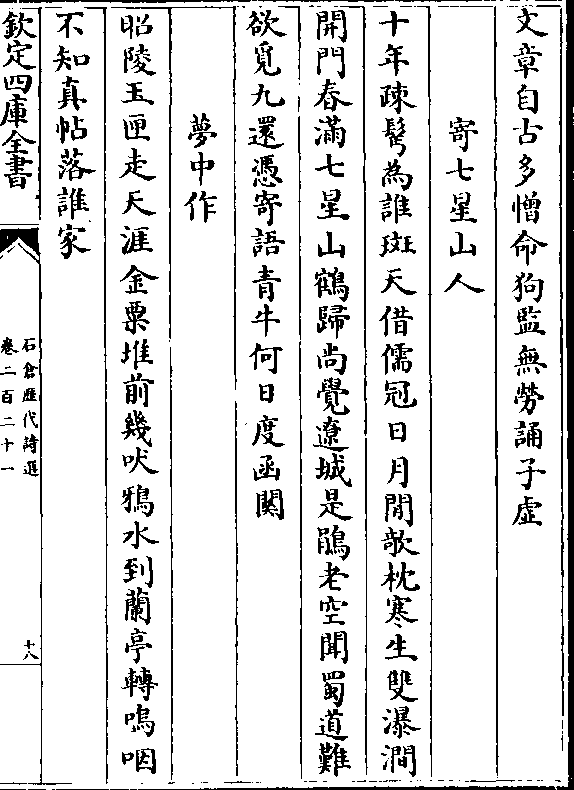 文章自古多憎命狗監無勞誦子虛
寄七星山人
十年疎鬂為誰斑天借儒冠日月閒欹枕寒生雙瀑澗
開門春滿七星山鶴歸尚覺遼城是鵑老空聞蜀道難
欲覓九還憑寄語青牛何日度函関
夢中作
昭陵玉匣走天涯金粟堆前幾吠鴉水到蘭亭轉嗚咽
不知真帖落誰家
欽定四庫全書
石倉歷代詩選
卷二百二十一
十八